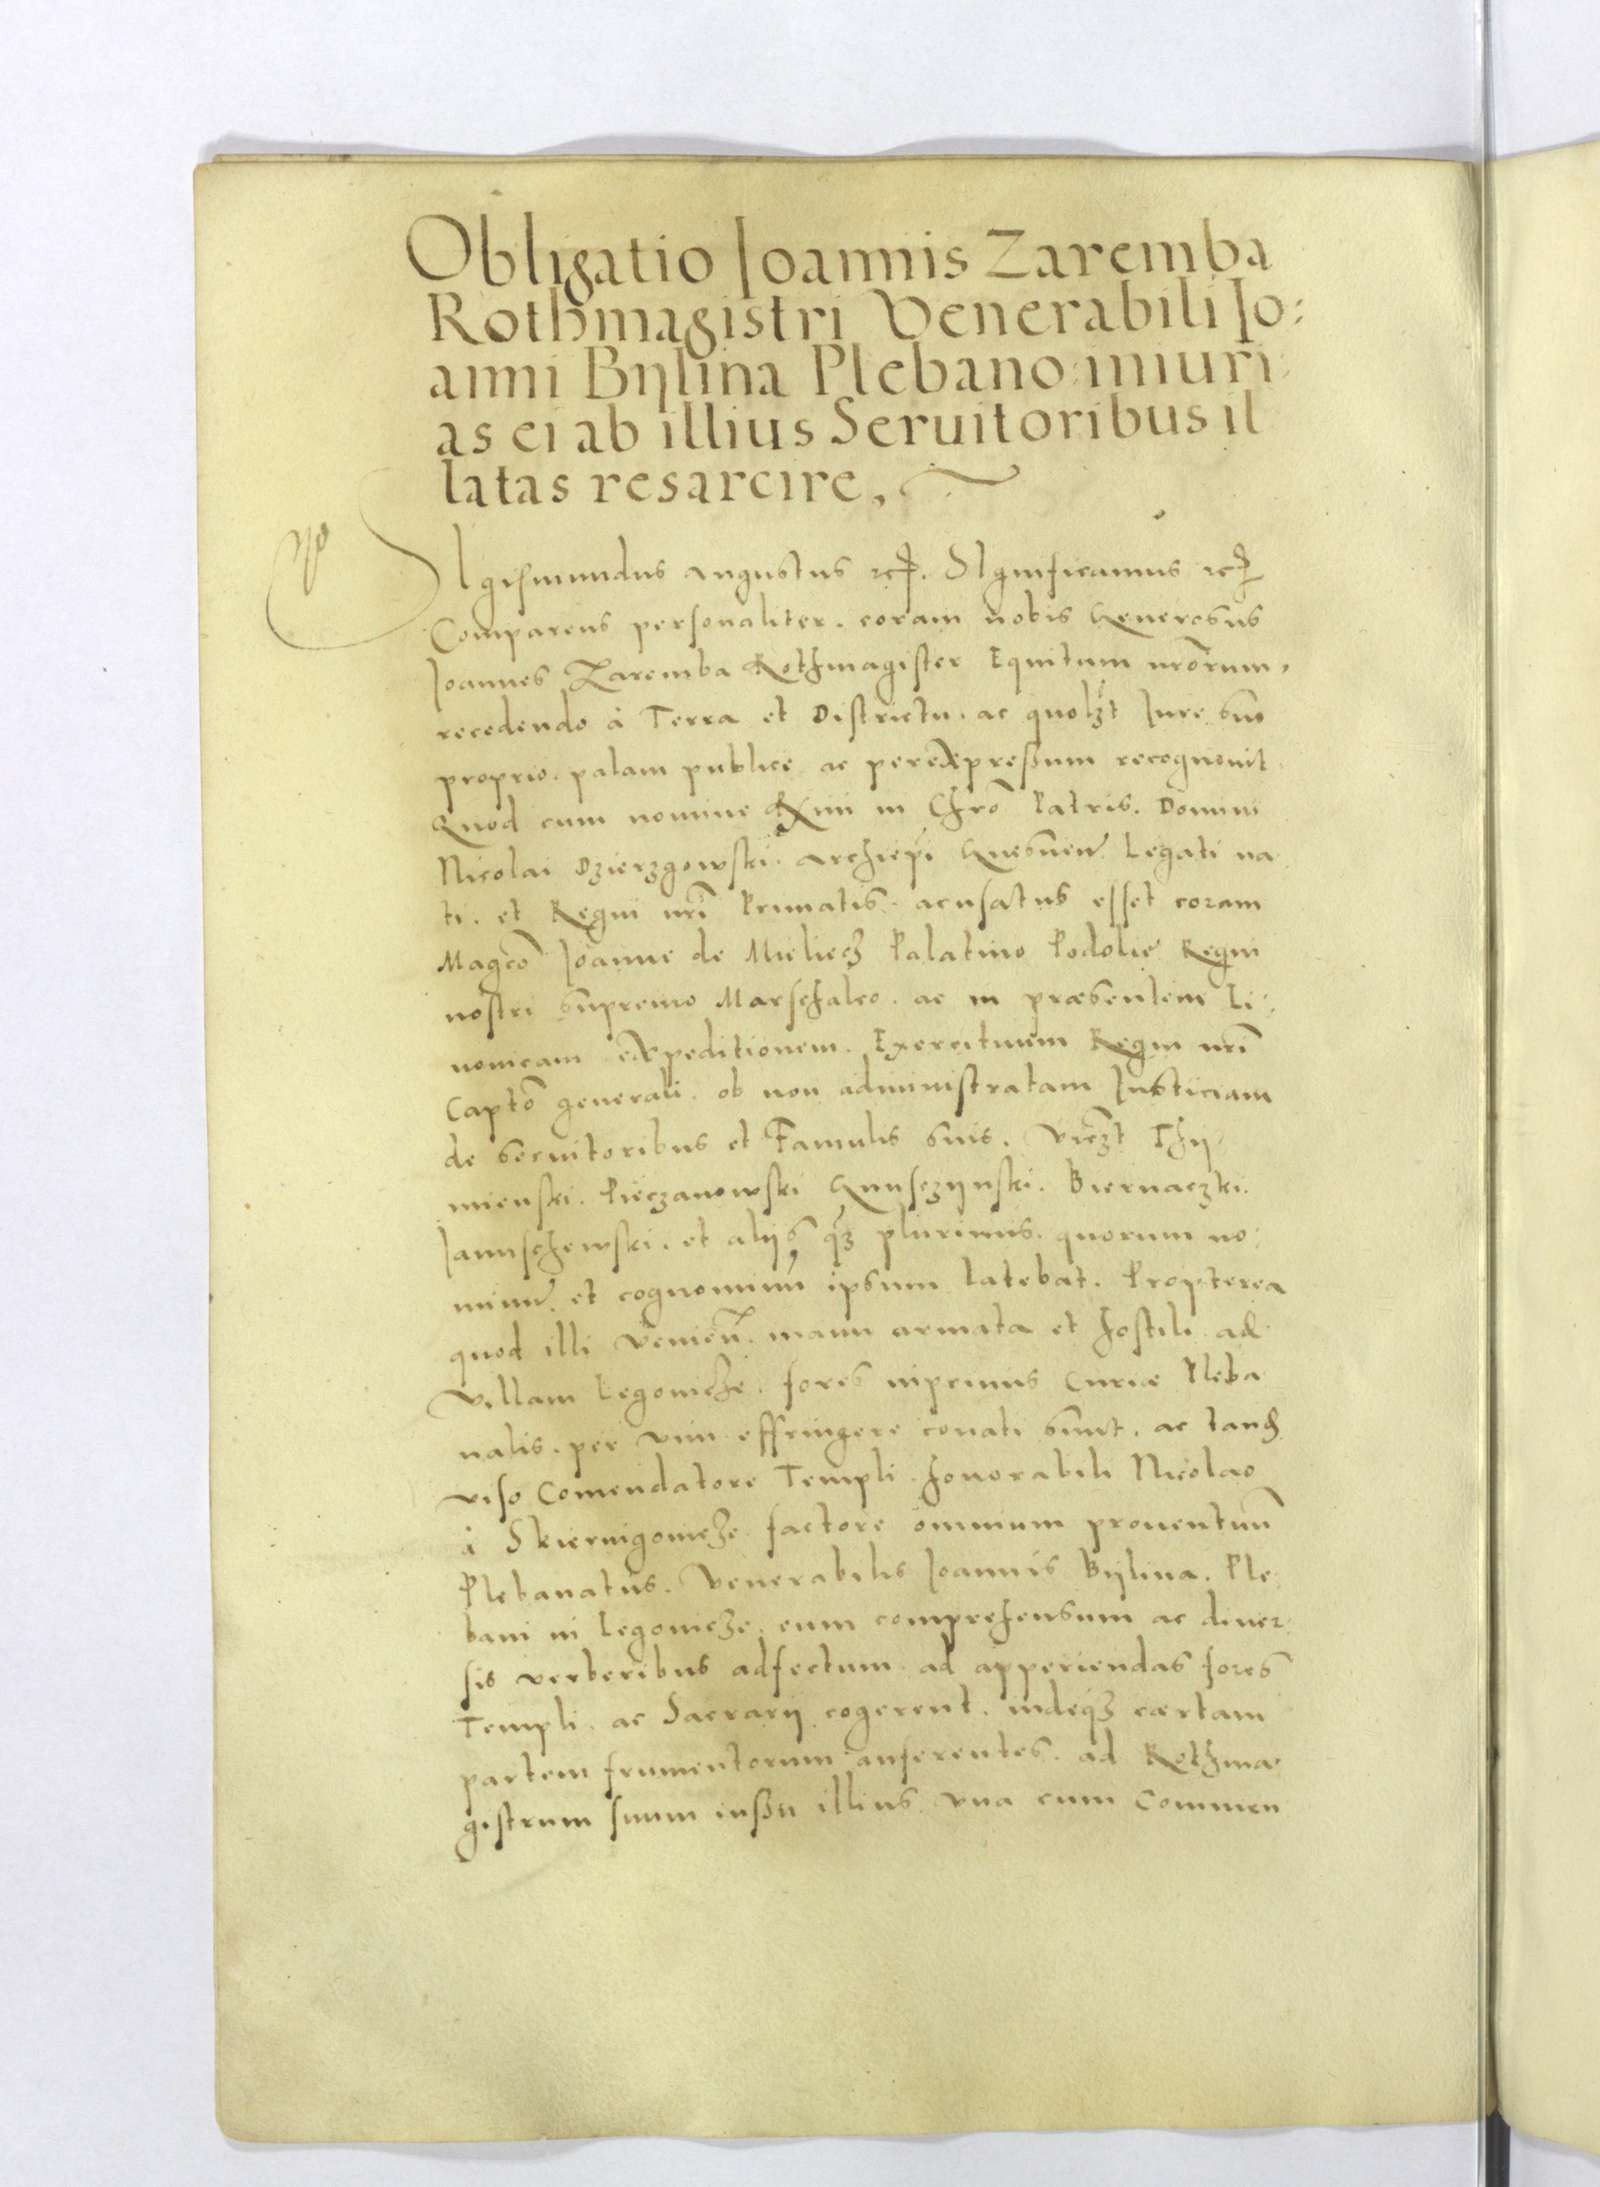 Obligatio Ioannis Zaremba
Rothmagistri Venerabili Io:
anni Bÿlina Plebano iniuri:
as ei ab illius Seruitoribus il
latas resarcire,
Sigismundus Augustus etc. Significamus etc.
Comparens personaliter coram nobis Generosus
Ioannes Zaremba Rothmagister Equitum nrorum,
recedendo à Terra et Districtu, ac quolzt Iure suo
proprio, palam publice ac perexpressum recognouit
Quod cum nomine Rxmi in Chro Patris, Domini
Nicolai Dzierzgowski Archiepi Gnesnen Legati na
ti, et Regni nri Primatis, acusatus esset coram
Magco Ioanne de Mieliecz Palatino Podolie Regni
nostri Supremo Marschalco, ac in præsentem Li:
uonicam expeditionem, Exercituum Regni nri
Capto generali, ob non administratam Iusticiam
de seruitoribus et Famulis suis, viczt Thÿ
mienski, Pieczanowski Grusczÿnski, Biernaczki
Ianuschewski, et alijs qz plurimis, quorum no:
minu et cognominu ipsum latebat, Propterea
quod illi venien manu armata et hostili ad
villam Legoniche, fores inprimis Curiæ Pleba
nalis, per vim effringere conati sunt, ac tand
viso Comendatore Templi honorabili Nicolao
à Skiernigoniche factore omnium prouentuu
Plebanatus, Venerabilis Ioannis Bÿlina, Ple:
bani in Legoniche, eum comprehensum ac diuer:
sis verberibus adfectum ad apperiendas fores
Templi, ac Sacrarij cogerent, indeqz certam
partem frumentorum auferentes, ad Rothma
gistrum suum iussu illius vna cum Commen